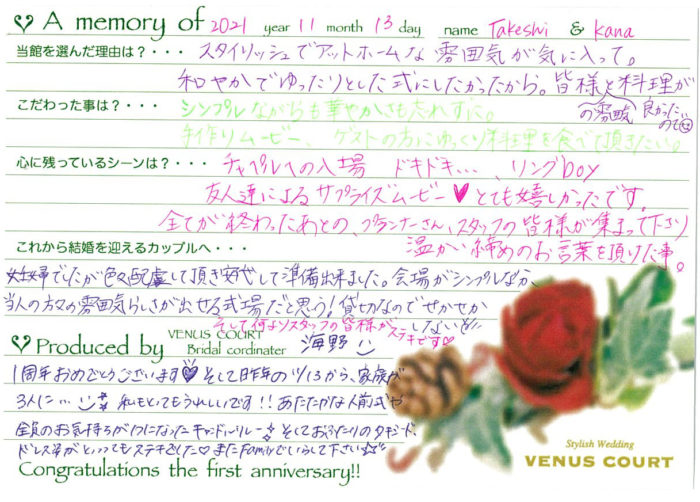 A memory of 2021 year 11 month 13 day name Takeshi & kana
当館を選んだ理由は？・・・ スタイリッシュでアットホームな雰囲気が気に入って。
和やかでゆったりとした式にしたかったから。皆様と料理が
の雰囲気 良かったので
こだわった事は？・・・ シンプルながらも華やかさも忘れずに。
手作りムービー、ゲストの方にゆっくり料理を食べて頂きたい。
心に残っているシーンは？・・・ チャペルへの入場 ドキドキ…、リングboy
友人達によるサプライズムービー♥とても嬉しかったです。
全てが終わったあとの、プランナーさん、スタッフの皆様が集まって下さり
温かい締めのお言葉を頂けた事。
これから結婚を迎えるカップルへ・・・
妊婦でしたが色々配慮して頂き安心して準備出来ました。会場がシンプルなため、
当人の方々の雰囲気らしさが出せる式場だと思う！貸切なのでせかせか
しないし!!
そして何よりスタッフの皆様がステキです♡
Produced by VENUS COURT
Bridal cordinater 海野
1周年おめでとうございます♥ そして昨年の11/13から、家族が
3人に… 私もとってもうれしいです！！あたたかな人前式や
全員のお気持ちが1つになったキャンドルリレー そしておふたりのタキシード、
ドレス姿がとってもステキでした♡またFamilyでいらして下さい
Congratulations the first anniversary!!
Stylish Wedding
VENUS COURT